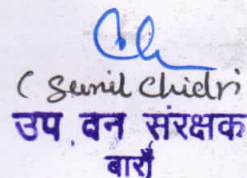 (Sunil Chidri)
उप वन संरक्षक
बाराँ